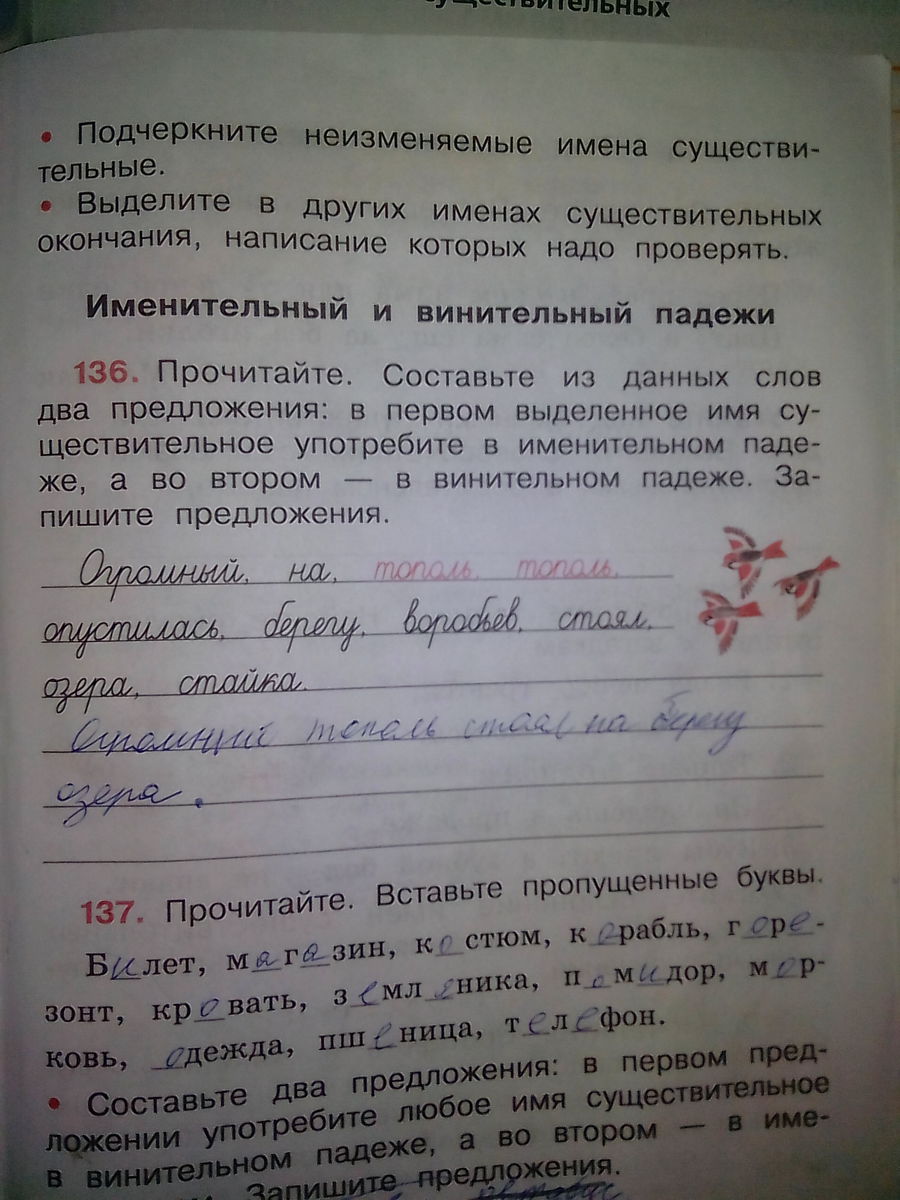 существительных
• Подчеркните неизменяемые имена существи-
тельные.
• Выделите в других именах существительных
окончания, написание которых надо проверять.
Именительный и винительный падежи
136. Прочитайте. Составьте из данных слов
два предложения: в первом выделенное имя су-
ществительное употребите в именительном паде-
же, а во втором — в винительном падеже. За-
пишите предложения.
Огромный, на, тополь, тополь,
опустилась, берегу, воробьев, стоял,
озера, стайка.
Огромный тополь стоял на берегу
озера.
137. Прочитайте. Вставьте пропущенные буквы.
Билет, магазин, костюм, корабль, горе-
зонт, кровать, земленика, помидор, мор-
ковь, одежда, пшеница, телефон.
• Составьте два предложения: в первом пред-
ложении употребите любое имя существительное
в винительном падеже, а во втором — в име-
Запишите предложения.